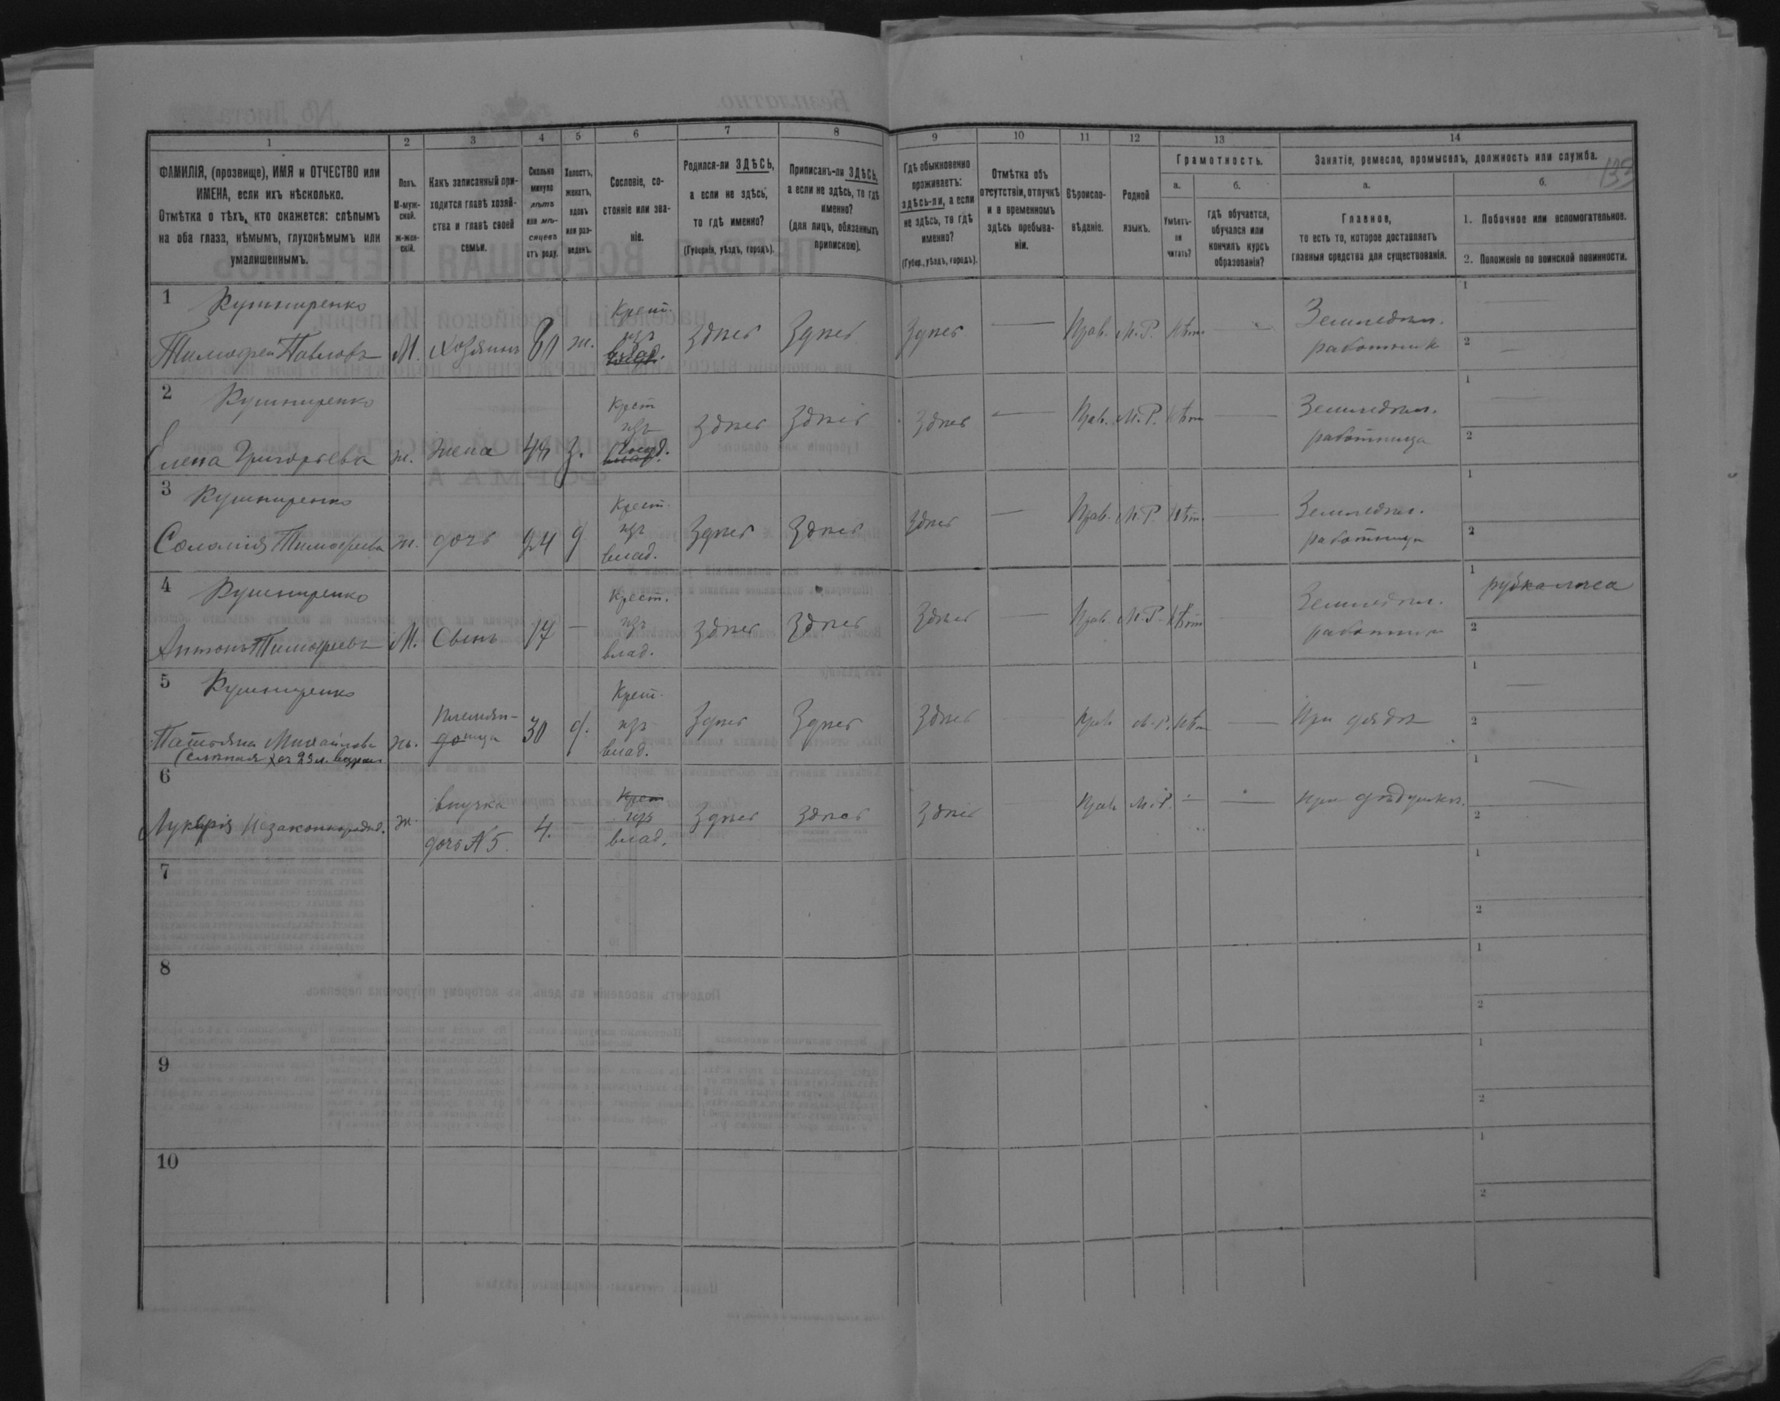 133
1 2 3 4 5 6 7 8 9 10 11 12 13 14
ФАМИЛІЯ, (прозвище), ИМЯ и ОТЧЕСТВО или
ИМЕНА, если ихъ нѣсколько.
Отмѣтка о тѣхъ, кто окажется: слѣпымъ
на оба глаза, нѣмымъ, глухонѣмымъ или
умалишеннымъ.
Полъ.
М-муж-
ской.
ж-жен-
скій.
Какъ записанный при-
ходится главѣ хозяй-
ства и главѣ своей
семьи.
Сколько
минуло
лѣтъ
или мѣ-
сяцевъ
отъ роду.
Холостъ,
женатъ,
вдовъ
или раз-
веденъ.
Сословіе, со-
стояніе или зва-
ніе.
Родился-ли ЗДѢСЬ,
а если не здѣсь,
то гдѣ именно?
(Губернія, уѣздъ, городъ).
Приписанъ-ли ЗДѢСЬ,
а если не здѣсь, то гдѣ
именно?
(для лицъ, обязанныхъ
припискою).
Гдѣ обыкновенно
проживаетъ:
здѣсь-ли, а если
не здѣсь, то гдѣ
именно?
(Губер., уѣздъ, городъ).
Отмѣтка объ
отсутствіи, отлучкѣ
и о временномъ
здѣсь пребыва-
ніи.
Вѣроиспо-
вѣданіе.
Родной
языкъ.
Грамотность.
а.
Умѣетъ-
ли
читать?
б.
гдѣ обучается,
обучался или
кончилъ курсъ
образованія?
Занятіе, ремесло, промыселъ, должность или служба.
а.
Главное,
то есть то, которое доставляетъ
главныя средства для существованія.
б.
1. Побочное или вспомогательное.
2. Положеніе по воинской повинности.
1 Кушниренко
Тимофей Павловъ М. хозяинъ 60 ж. Крест. изъ влад. Здѣсь Здѣсь Здѣсь — Прав. М.Р. Нѣт — Земледѣл. работник 1 — 2 —
2 Кушниренко
Елена Григорьева ж. жена 44 з. Крест изъ влад. Здѣсь Здѣсь Здѣсь — Прав. М.Р. Нѣт — Земледѣл. работница 1 — 2
3 Кушниренко
Соломія Тимофеева ж. дочь 24 д Крест. изъ влад. Здѣсь Здѣсь Здѣсь — Прав. М.Р. Нѣт. — Земледѣл. работница 1 2
4 Кушниренко
Антонъ Тимофеевъ М. Сынъ 17 — Крест. изъ влад. Здѣсь Здѣсь Здѣсь — Прав М.Р. Нѣт — Земледѣл. работник 1 рубка лѣса 2
5 Кушниренко
Татьяна Михайлова ж. Племян-ница 30 д. Крест. изъ влад. Здѣсь Здѣсь Здѣсь — Прав М.Р. Нѣт — При дядѣ 1 — 2
6
Лукерія Незаконнорожд. ж. внучка дочь №5. 4. — Крест изъ влад. Здѣсь Здѣсь Здѣсь — Прав М.Р. — — при дѣдушкѣ. 1 — 2
7 1 2
8 1 2
9 1 2
10 1 2